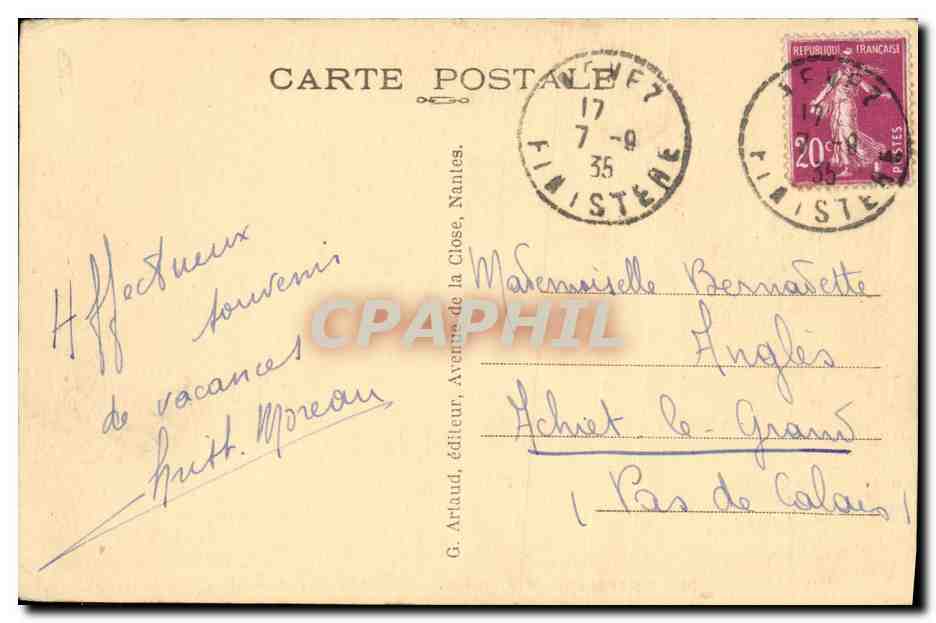 CARTE POSTALE
NEVEZ
17
7 -9
35
FINISTERE
REPUBLIQUE FRANÇAISE
20c
POSTES
NEVEZ
17
7 -9
35
FINISTERE
Affectueux
souvenir
de vacances
Moreau
G. Artaud, éditeur, Avenue de la Close, Nantes.
Mademoiselle Bernadette
Anglès
Achiet-le-Grand
(Pas de Calais)
CPAPHIL